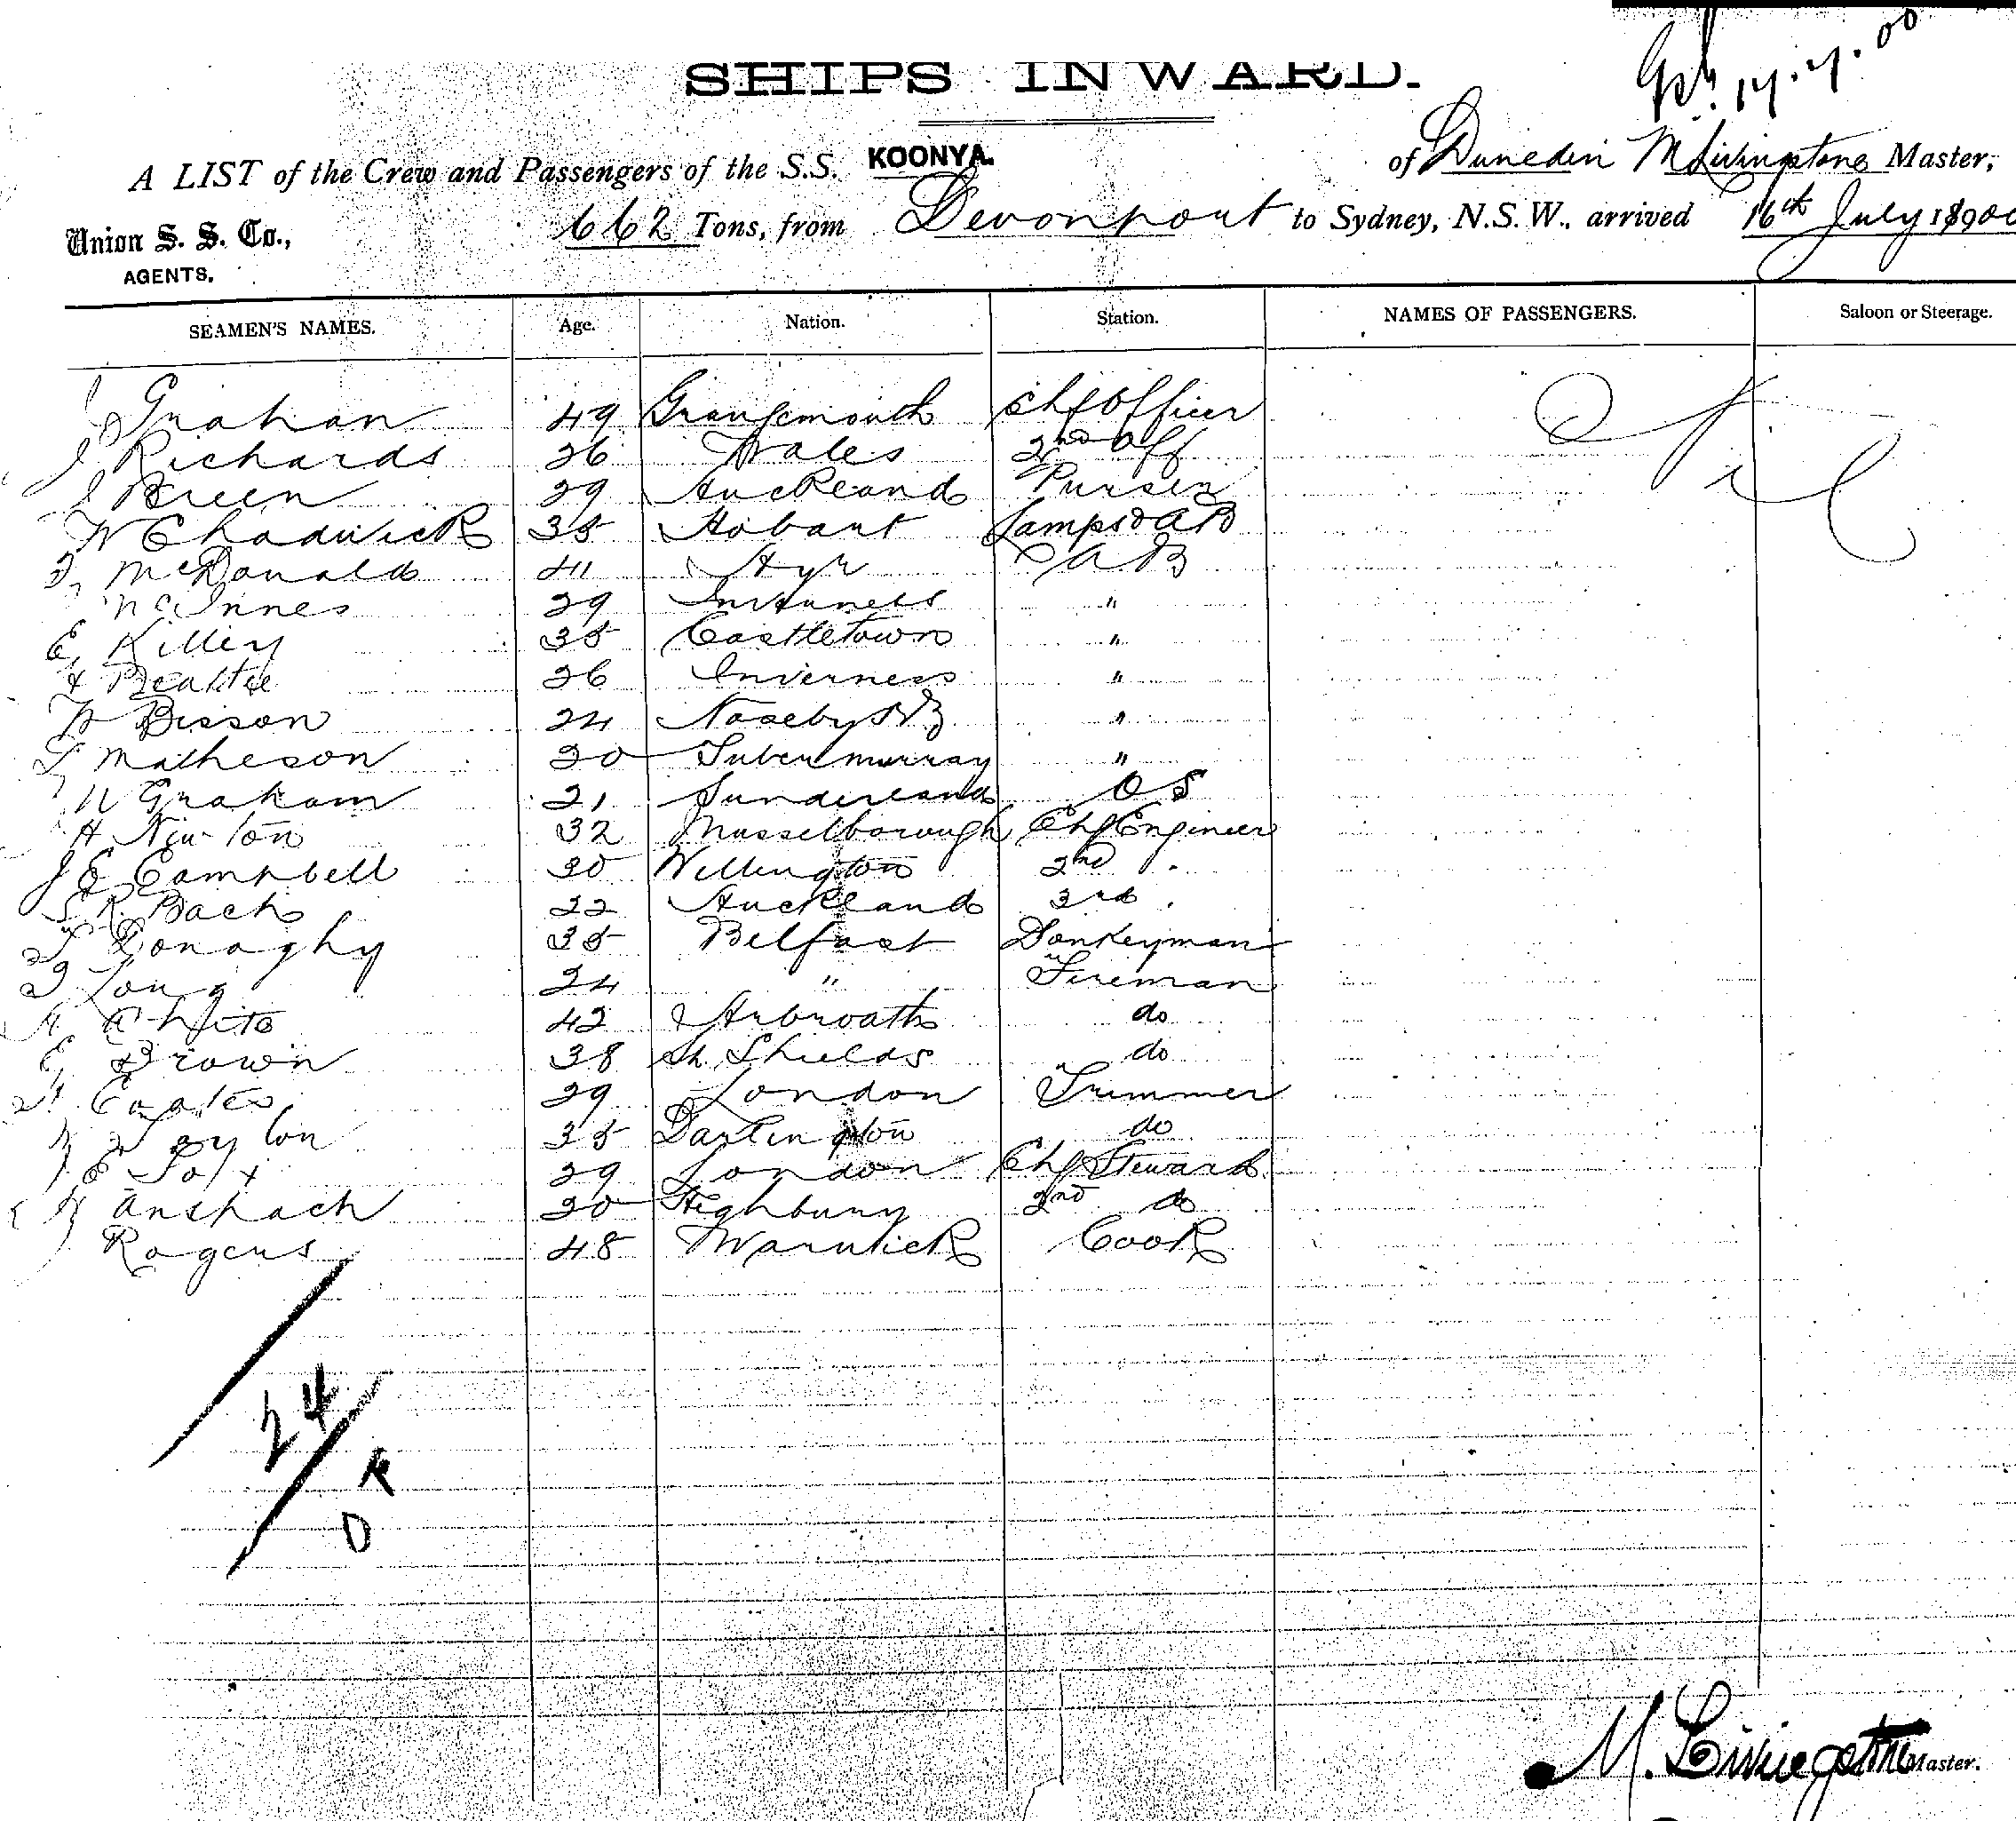 17.7.00
SHIPS INWARD.
A LIST of the Crew and Passengers of the S.S. KOONYA. of Dunedin M Livingstone Master,
Union S. S. Co., AGENTS. 662 Tons, from Devonport to Sydney, N.S.W., arrived 16th July 1900
SEAMEN'S NAMES. Age. Nation. Station. NAMES OF PASSENGERS. Saloon or Steerage.
J Graham 49 Grangemouth Chf Officer Nil
J Richards 26 Wales 2nd Off
J Breen 29 Auckland Purser
W Chadwick 35 Hobart Lamps & AB
McDonald 41 Ayr AB
McInnes 29 Inverness "
E Killey 35 Castletown "
Beattie 26 Inverness "
W Bisson 24 Naseby NZ "
Matheson 30 Tubermurray "
W Graham 21 Sunderland OS
H Newton 32 Musselborough Chf Engineer
J E Campbell 30 Wellington 2nd "
R Bach 22 Auckland 3rd "
Donaghy 35 Belfast Donkeyman
Long 24 " Fireman
White 42 Arbroath do
E Brown 38 Sh Shields do
Coates 29 London Trimmer
Taylor 35 Darlington do
29 London Chf Steward
Anspach 30 Highbury 2nd do
Rogers 48 Warwick Cook
24
M. Livingstone Master.